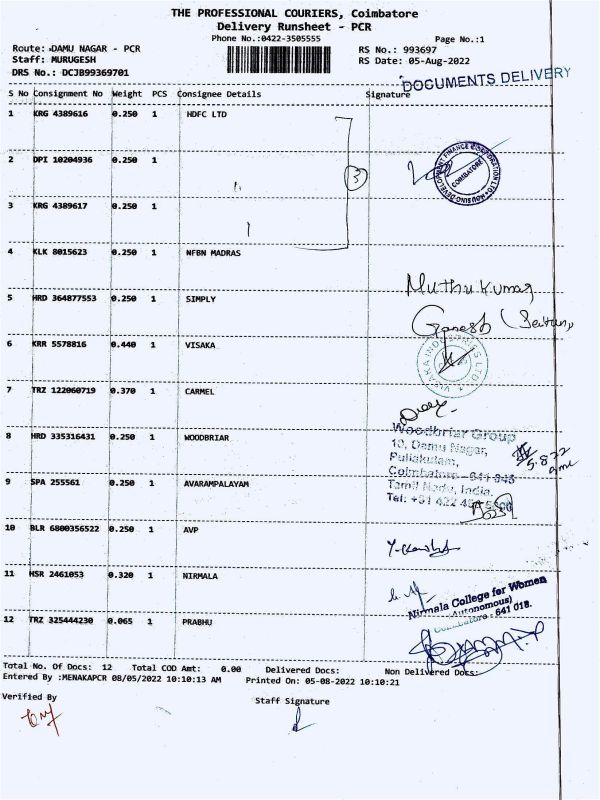 THE PROFESSIONAL COURIERS, Coimbatore
Delivery Runsheet - PCR
Phone No.:0422-3505555
Page No.:1
Route: DAMU NAGAR - PCR
RS No.: 993697
Staff: MURUGESH
RS Date: 05-Aug-2022
DRS No.: DCJB99369701
DOCUMENTS DELIVERY
S No Consignment No Weight PCS Consignee Details Signature
1 KRG 4389616 0.250 1 HDFC LTD
2 DPI 10204936 0.250 1
3
HOUSING DEVELOPMENT FINANCE CORPORATION LTD
COIMBATORE
3 KRG 4389617 0.250 1
4 KLK 8015623 0.250 1 NFBN MADRAS
Muthu Kumar
5 HRD 364877553 0.250 1 SIMPLY
Ganesh
6 KRR 5578816 0.440 1 VISAKA
VISAKA INDUSTRIES LTD.
7 TRZ 122060719 0.370 1 CARMEL
8 HRD 335316431 0.250 1 WOODBRIAR
Woodbriar Group
10, Damu Nagar,
Puliakulam,
Coimbatore - 641 045
Tamil Nadu, India.
Tel: +91 422
5.8.22
9 SPA 255561 0.250 1 AVARAMPALAYAM
10 BLR 6800356522 0.250 1 AVP
11 HSR 2461053 0.320 1 NIRMALA
Nirmala College for Women
(Autonomous)
Coimbatore - 641 018.
12 TRZ 325444230 0.065 1 PRABHU
Total No. Of Docs: 12 Total COD Amt: 0.00 Delivered Docs: Non Delivered Docs:
Entered By :MENAKAPCR 08/05/2022 10:10:13 AM Printed On: 05-08-2022 10:10:21
Verified By
Staff Signature